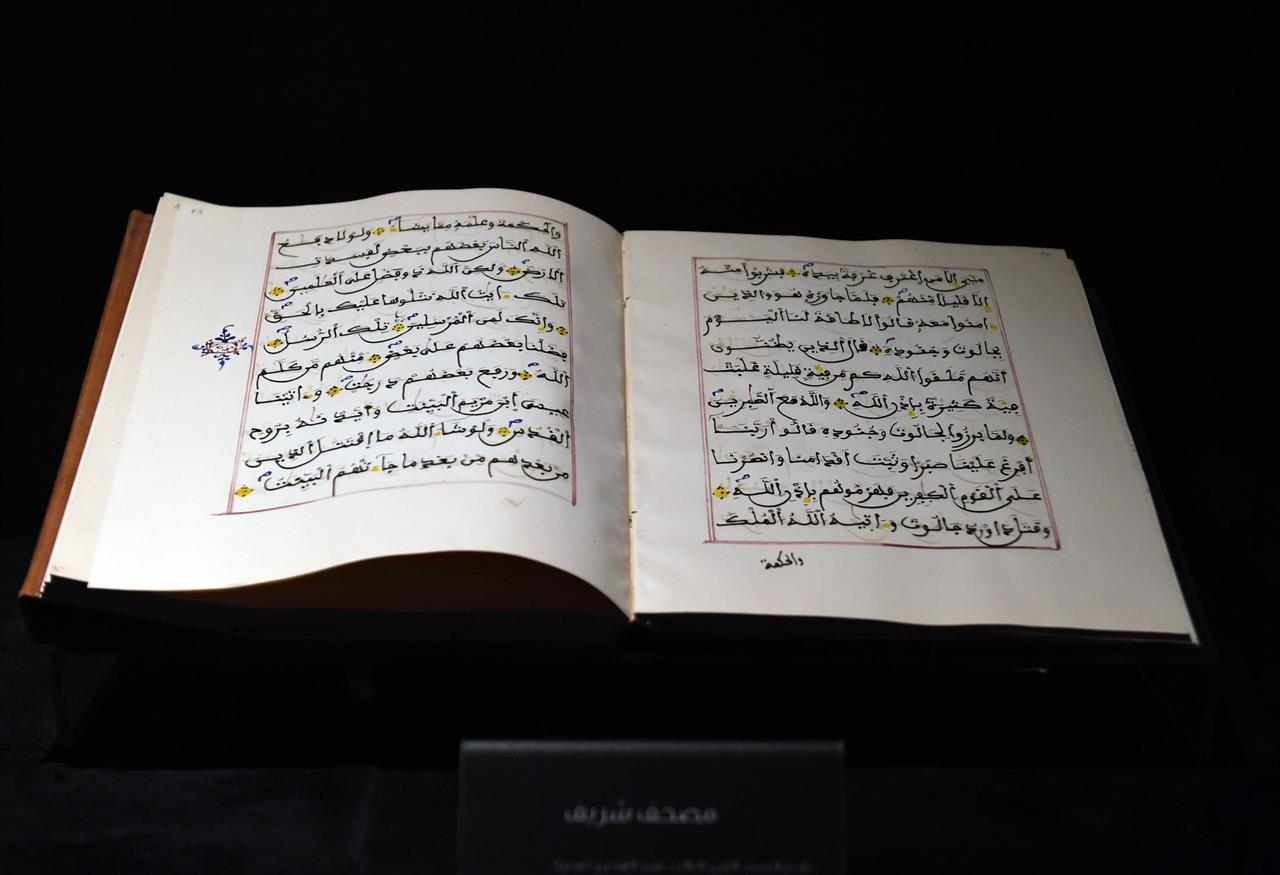 مني إلا من اغترف غرفة بيده فشربوا منه
إلا قليلا منهم فلما جاوزه هو والذين
ءامنوا معه قالوا لا طاقة لنا اليوم
بجالوت وجنوده قال الذين يظنون
أنهم ملقوا الله كم من فية قليلة غلبت
فية كثيرة بإذن الله والله مع الصبرين
ولما برزوا لجالوت وجنوده قالوا ربنا
أفرغ علينا صبرا وثبت أقدامنا وانصرنا
على القوم الكفرين فهزموهم بإذن الله
وقتل داورد جالوت وءاتيه الله الملك
والحكمة
والحكمة وعلمه مما يشاء ولولا دفع
الله الناس بعضهم ببعض لفسدت
الأرض ولكن الله ذو فضل على العلمين
تلك ءايت الله نتلوها عليك بالحق
وإنك لمن المرسلين تلك الرسل
فضلنا بعضهم على بعض منهم من كلم
الله ورفع بعضهم درجت وءاتينا
عيسى ابن مريم البينت وأيدنه بروح
القدس ولو شاء الله ما اقتتل الذين
من بعدهم من بعد ما جاءتهم البينت
مصحف شريف